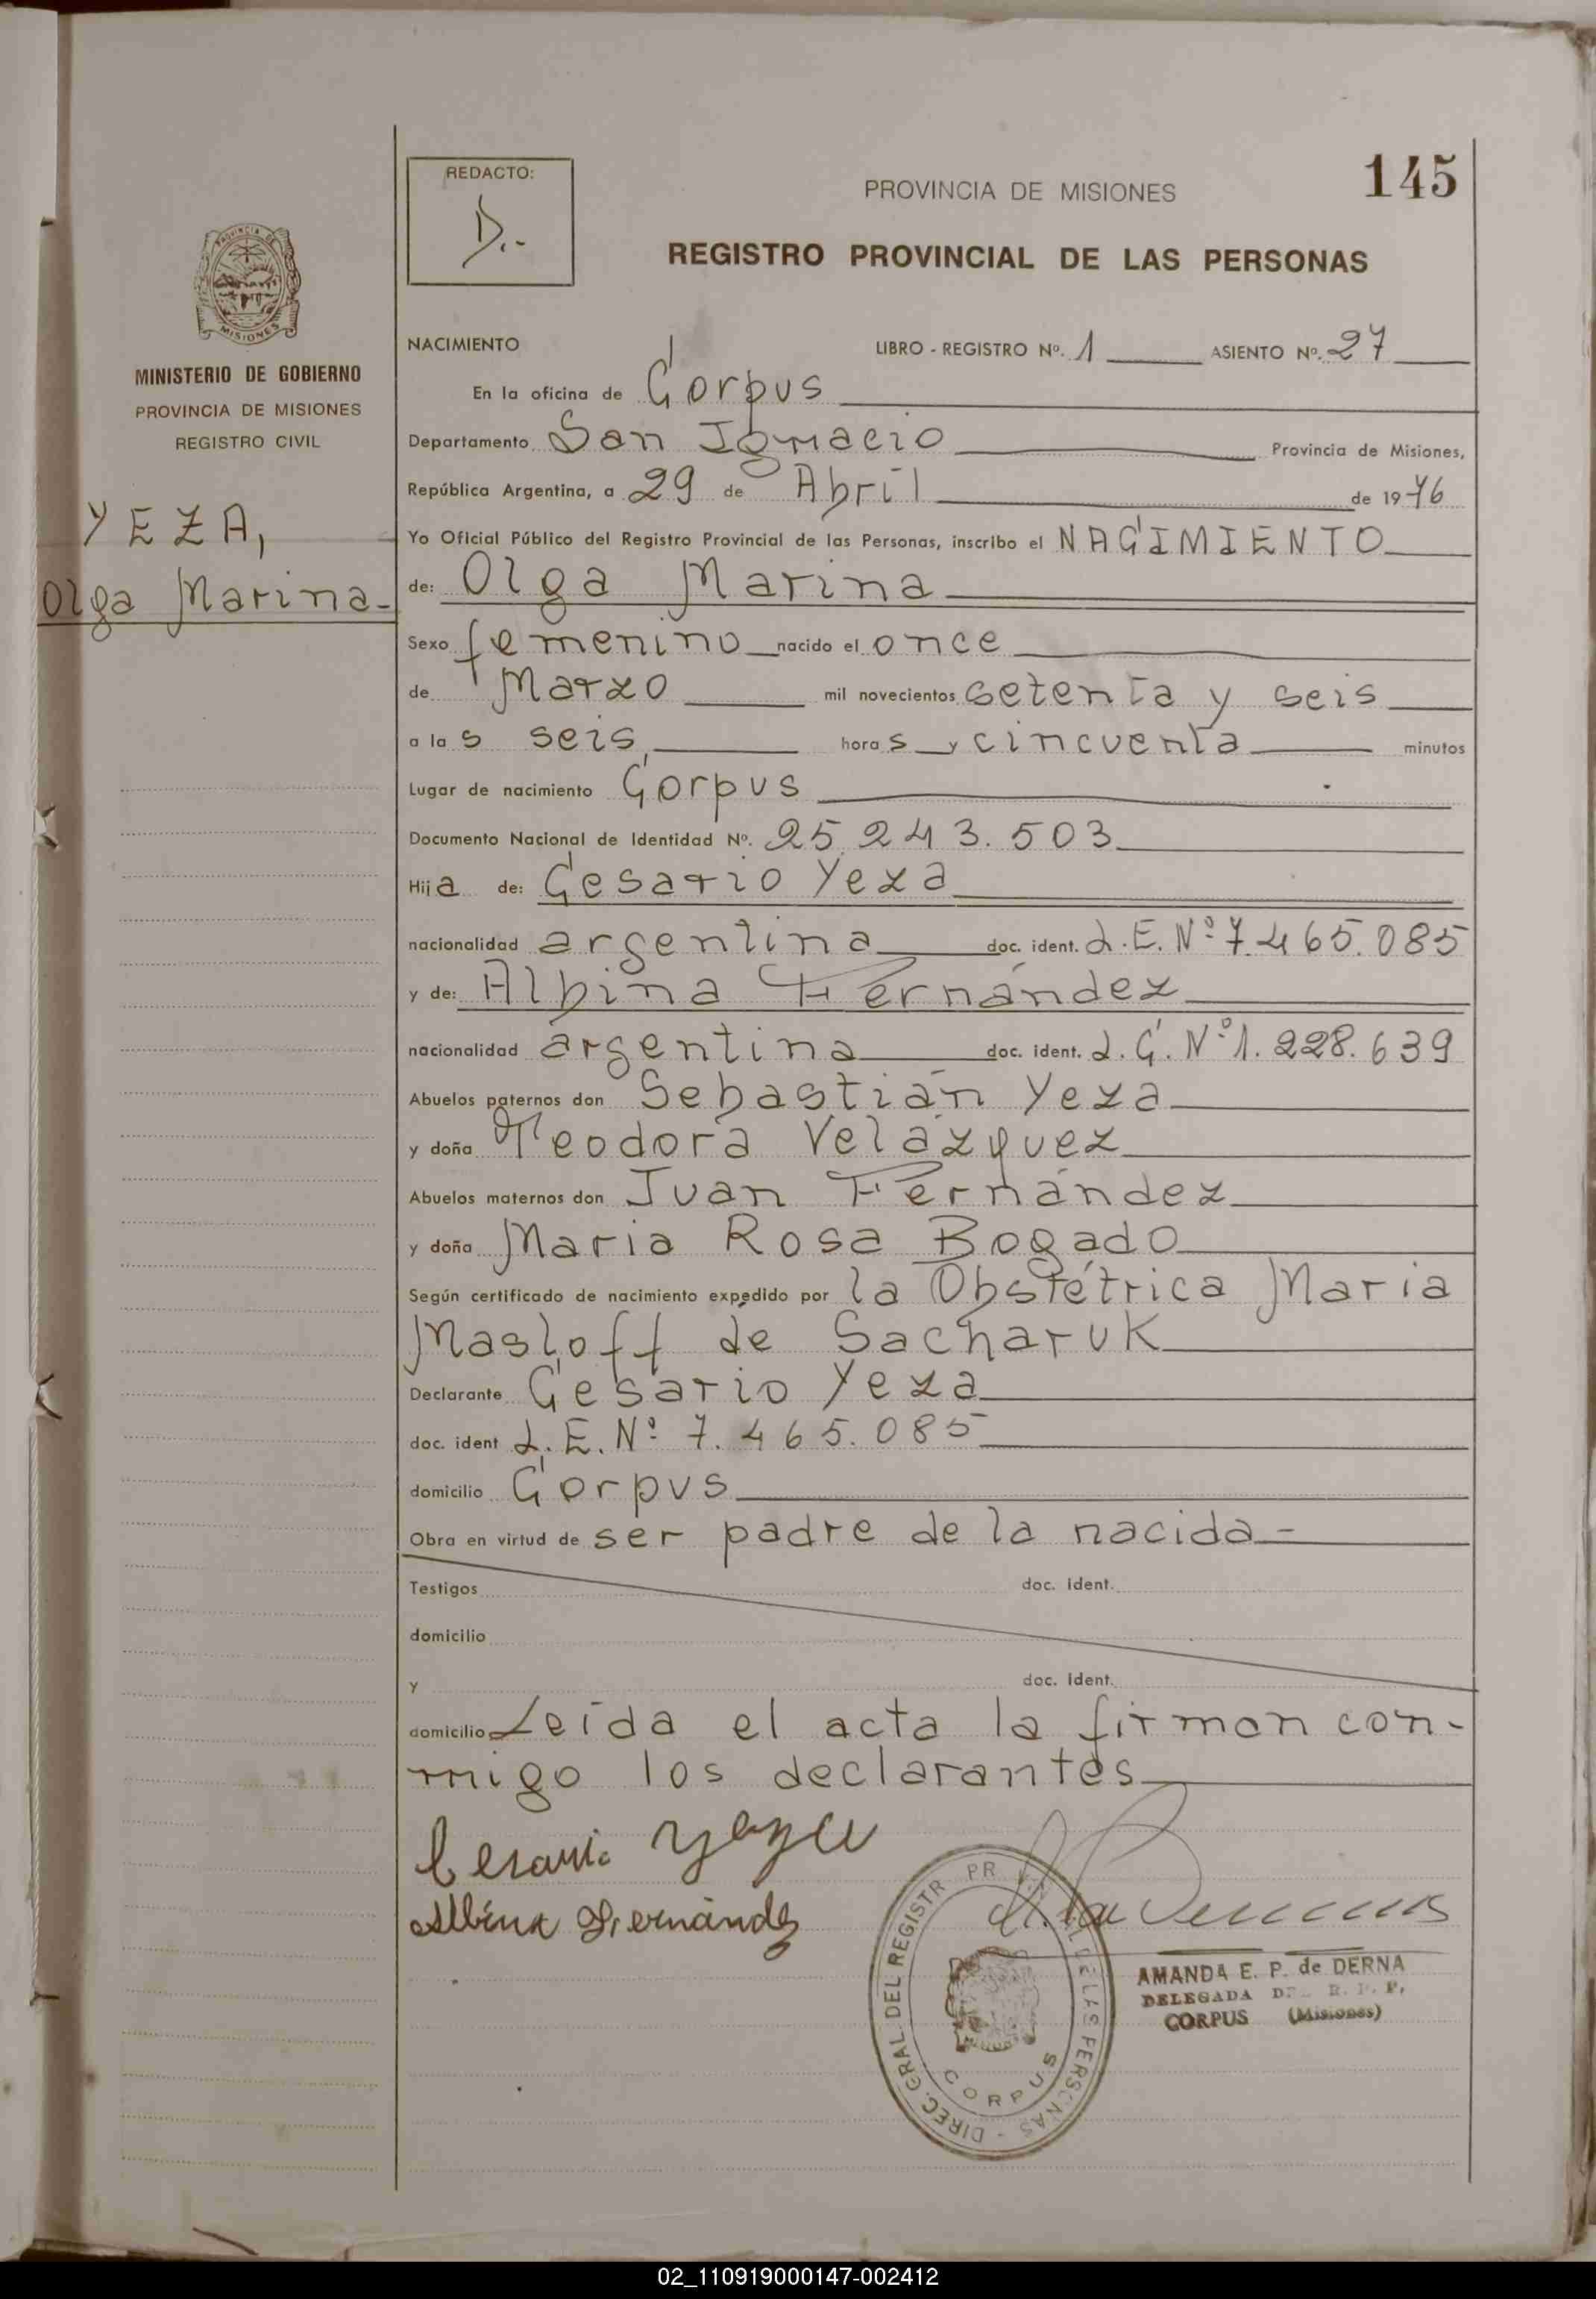 145
REDACTO:
D.-
PROVINCIA DE MISIONES
REGISTRO PROVINCIAL DE LAS PERSONAS
PROVINCIA DE
MISIONES
MINISTERIO DE GOBIERNO
PROVINCIA DE MISIONES
REGISTRO CIVIL
YEZA,
Olga Marina-
NACIMIENTO LIBRO - REGISTRO Nº. 1 ASIENTO Nº. 27
En la oficina de Corpus
Departamento San Ignacio Provincia de Misiones,
República Argentina, a 29 de Abril de 1976
Yo Oficial Público del Registro Provincial de las Personas, inscribo el NACIMIENTO
de: Olga Marina
Sexo femenino nacido el once
de Marzo mil novecientos setenta y seis
a las seis horas y cincuenta minutos
Lugar de nacimiento Corpus
Documento Nacional de Identidad Nº. 25.243.503
Hija de: Cesario Yeza
nacionalidad argentina doc. ident. L.E. Nº 7.465.085
y de: Albina Fernández
nacionalidad argentina doc. ident. L.C. Nº 1.228.639
Abuelos paternos don Sebastián Yeza
y doña Teodora Velázquez
Abuelos maternos don Juan Fernández
y doña Maria Rosa Bogado
Según certificado de nacimiento expedido por la Obstétrica Maria
Masloff de Sacharuk
Declarante Cesario Yeza
doc. ident L.E. Nº 7.465.085
domicilio Corpus
Obra en virtud de ser padre de la nacida-
Testigos doc. ident.
domicilio
y doc. ident.
domicilio Leída el acta la firman con-
migo los declarantes
Cesario Yeza
Albina Fernández
DIREC. GRAL. DEL REGISTR PR DE LAS PERSONAS -
CORPUS
AMANDA E. P. de DERNA
DELEGADA DEL R. P. P.
CORPUS (Misiones)
02_110919000147-002412